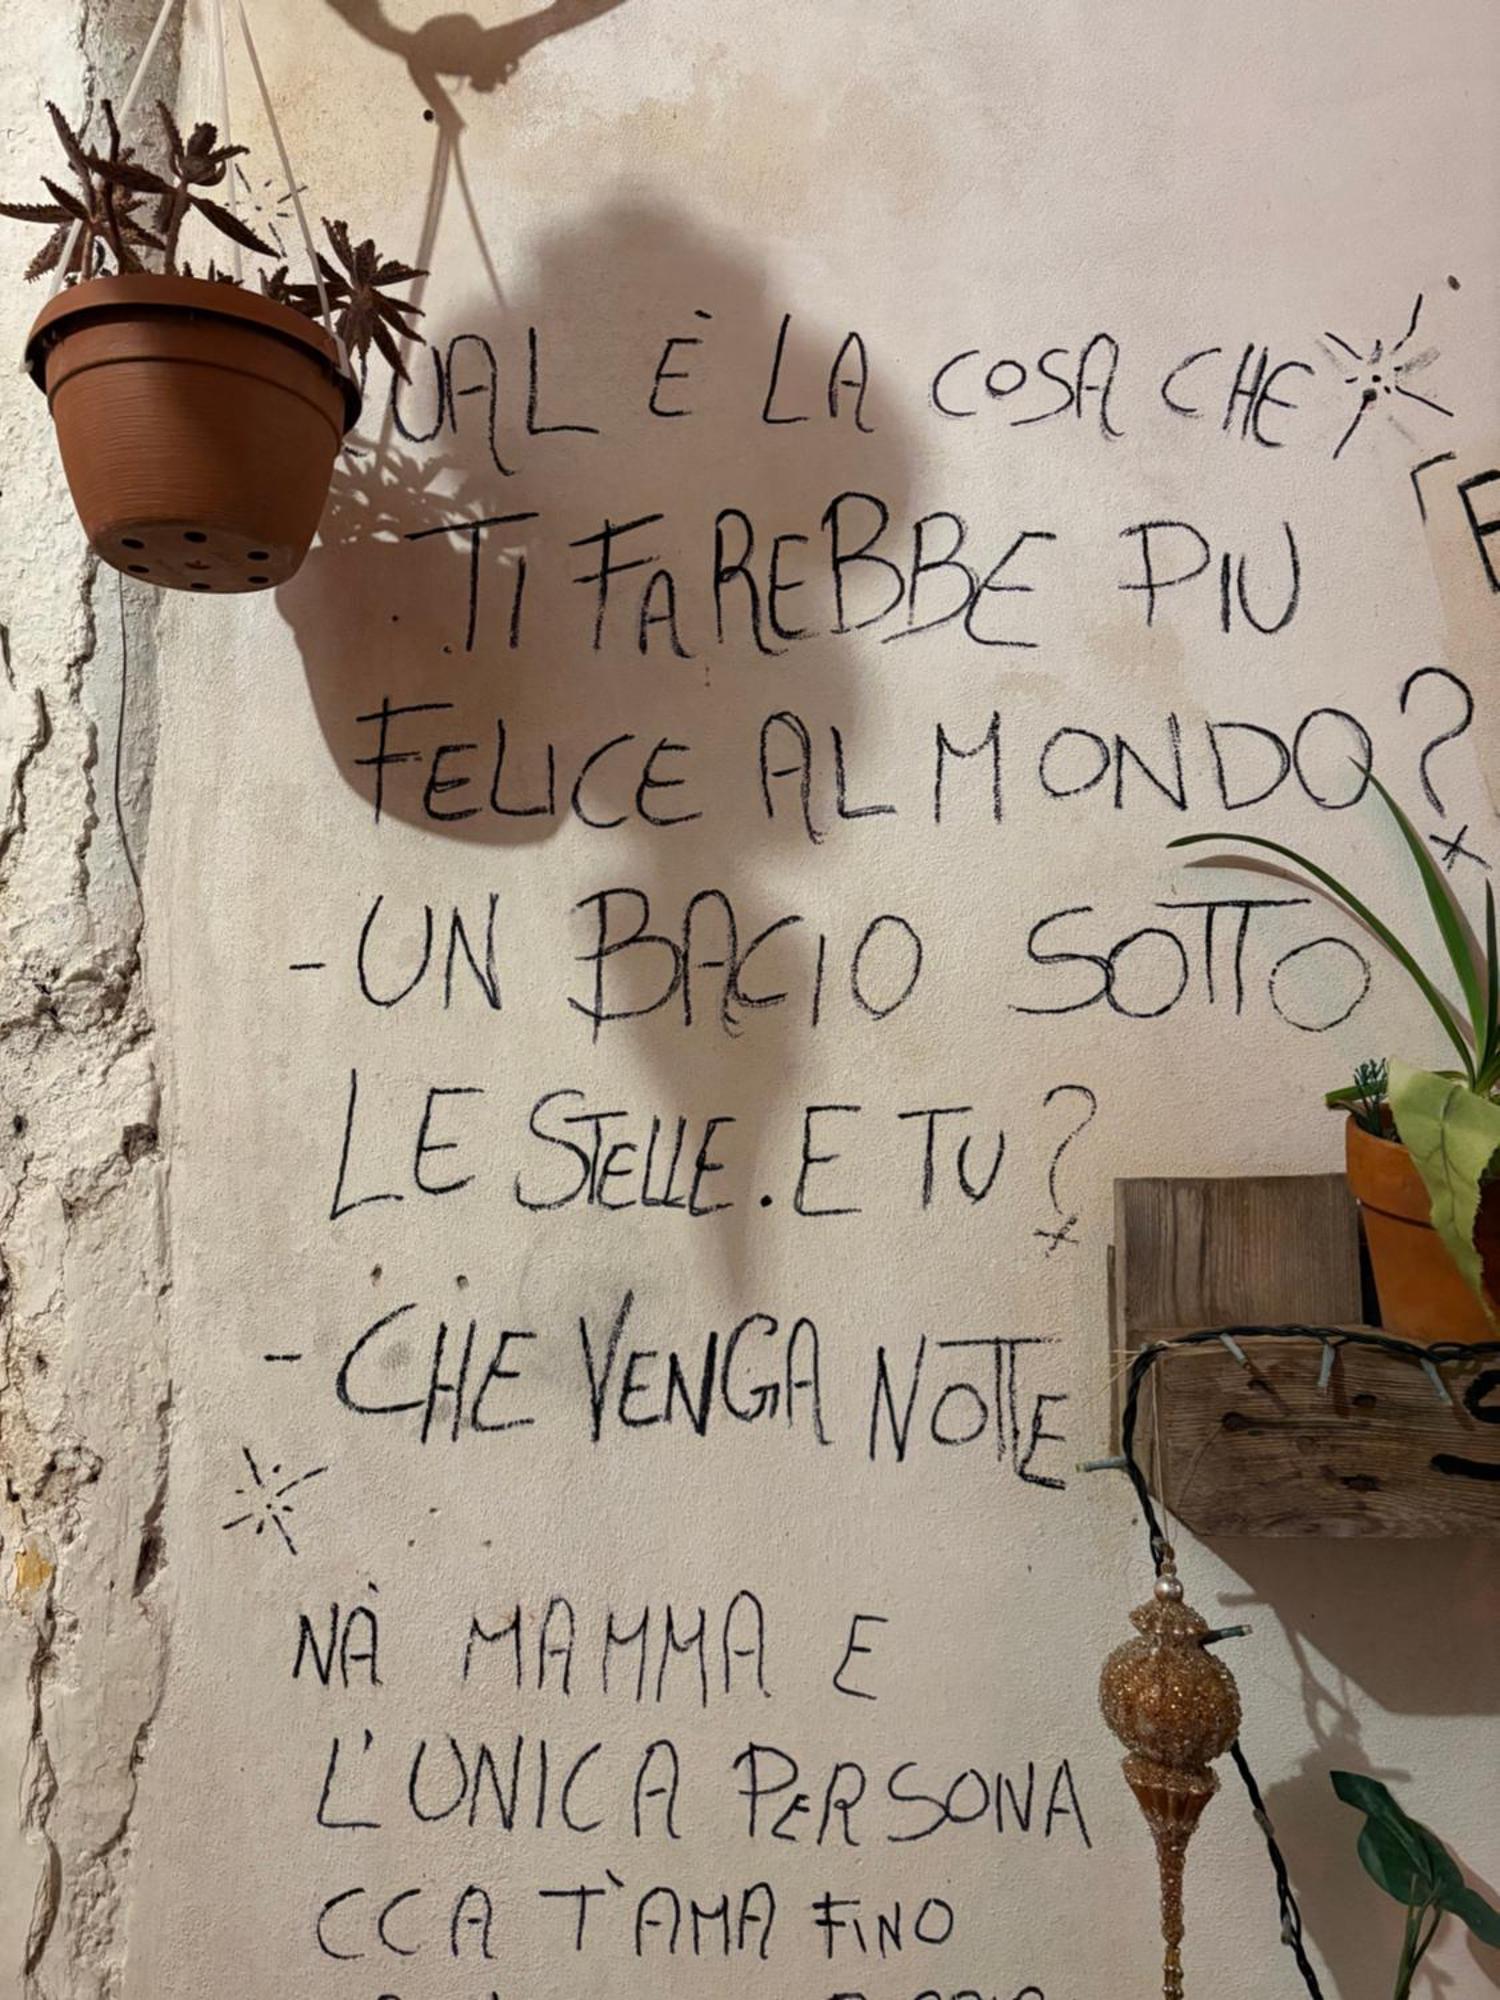 QUAL È LA COSA CHE
TI FAREBBE PIU
FELICE AL MONDO?
-UN BACIO SOTTO
LE STELLE. E TU?
-CHE VENGA NOTTE
NÀ MAMMA E
L'UNICA PERSONA
CCA T'AMA FINO